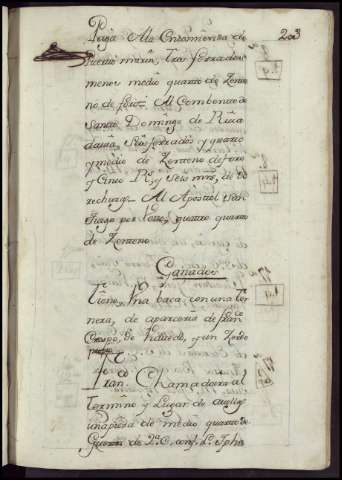 Paga Ala Encomienda de
203
Puerto marin, tres ferrados
menos medio quarto de Zente
no de fuero. Al Combento de
Santo Domingo de Riva
davia, seis ferrados y quarto
y medio de Zenteno de foro
y Cinco Rs. y seis mrs. de de
rechuras. Al Apostol san
tiago por Voto, quatro quartos
de Zenteno
Ganados
Tiene, Una baca con una ter
nera, de aparceria de Fran.co
Crespo, de
y un Zerdo
Fran.co Chamadoiro al
Termino y Lugar de
una pieza de medio quarto de
de 2.a C. conf. L.